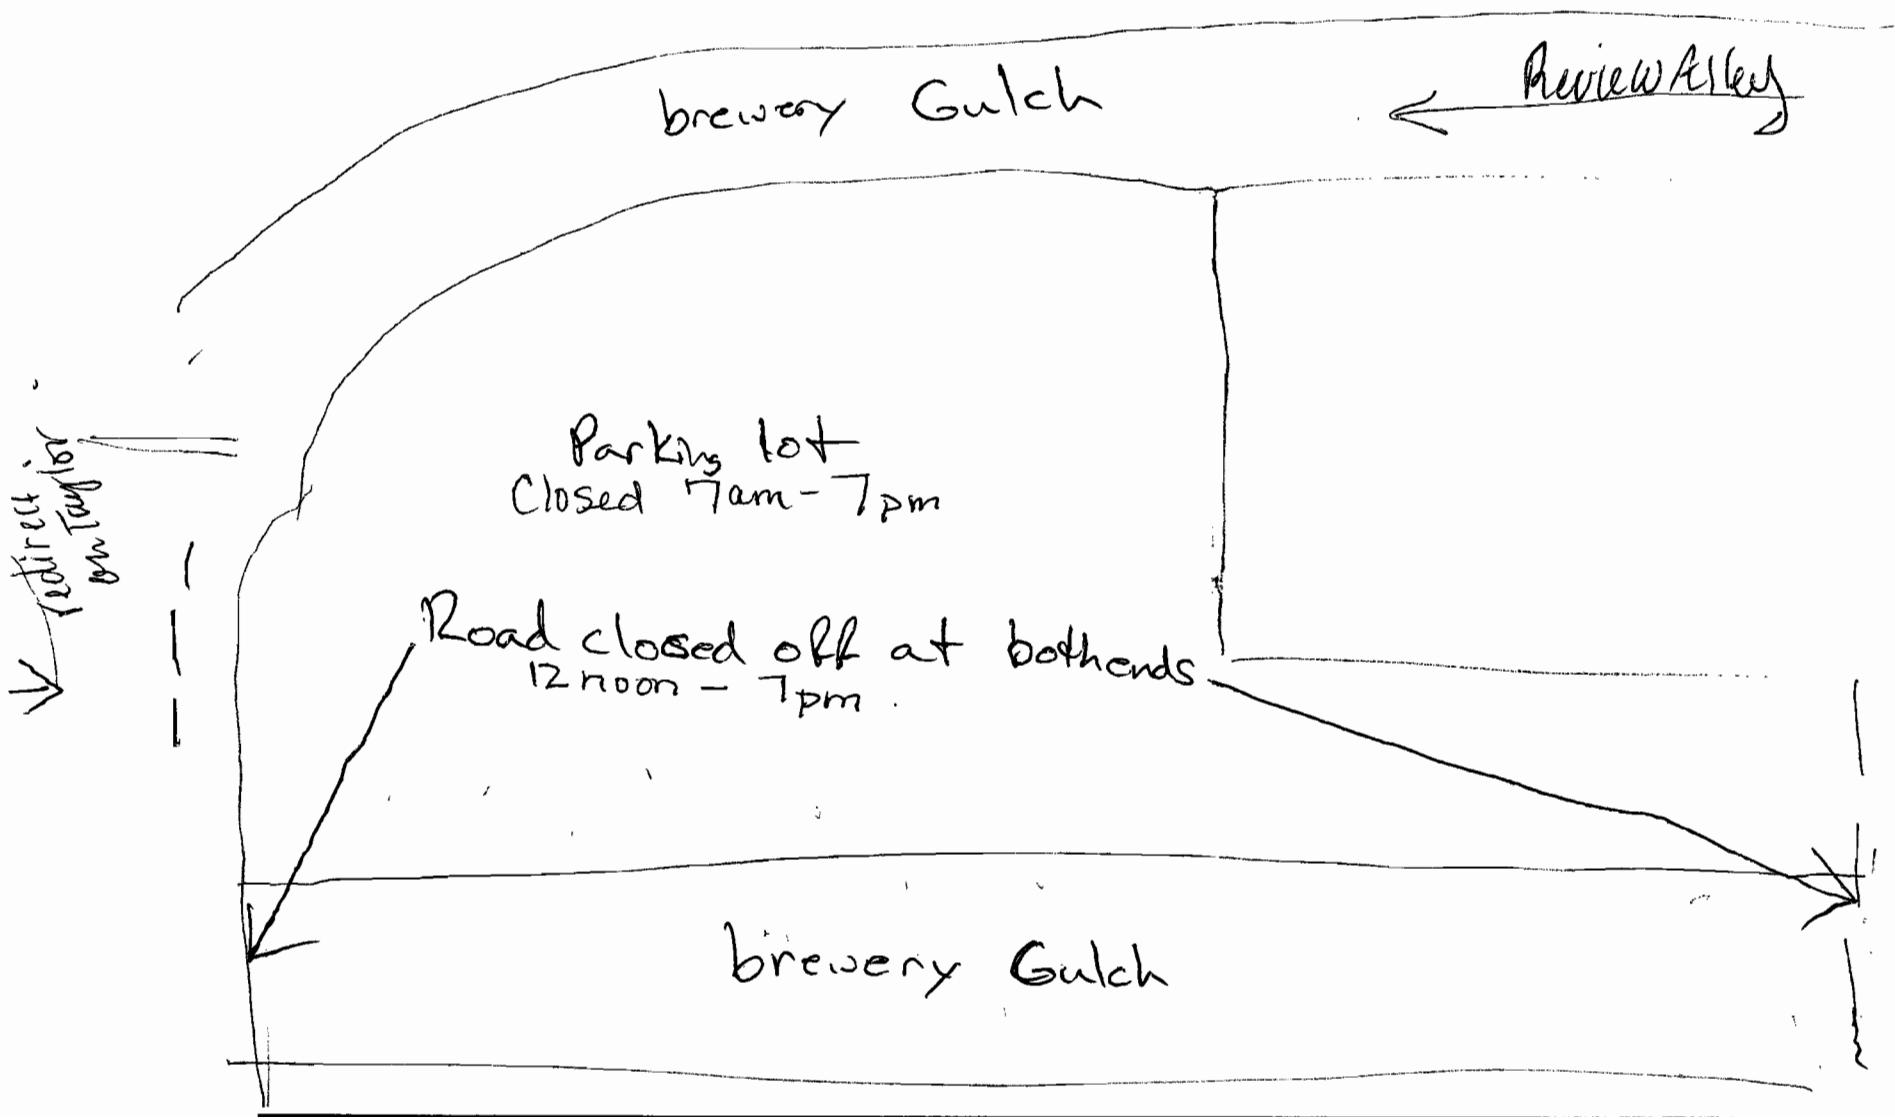 Review Alley
brewery Gulch
redirect
on Taylor
Parking lot
Closed 7am - 7pm
Road closed off at both ends
12 noon - 7pm.
brewery Gulch